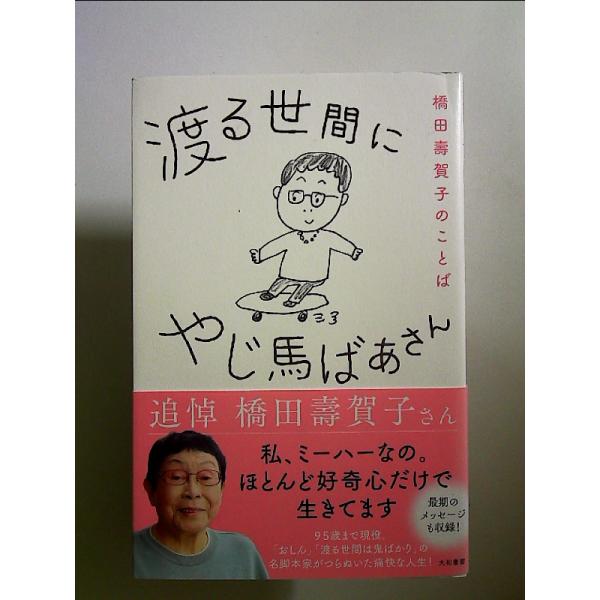 渡る世間に
やじ馬ばあさん
橋田壽賀子のことば
追悼 橋田壽賀子さん
私、ミーハーなの。
ほとんど好奇心だけで
生きてます
最期の
メッセージ
も収録!
95歳まで現役、
「おしん」「渡る世間は鬼ばかり」の
名脚本家がつらぬいた痛快な人生!
大和書房